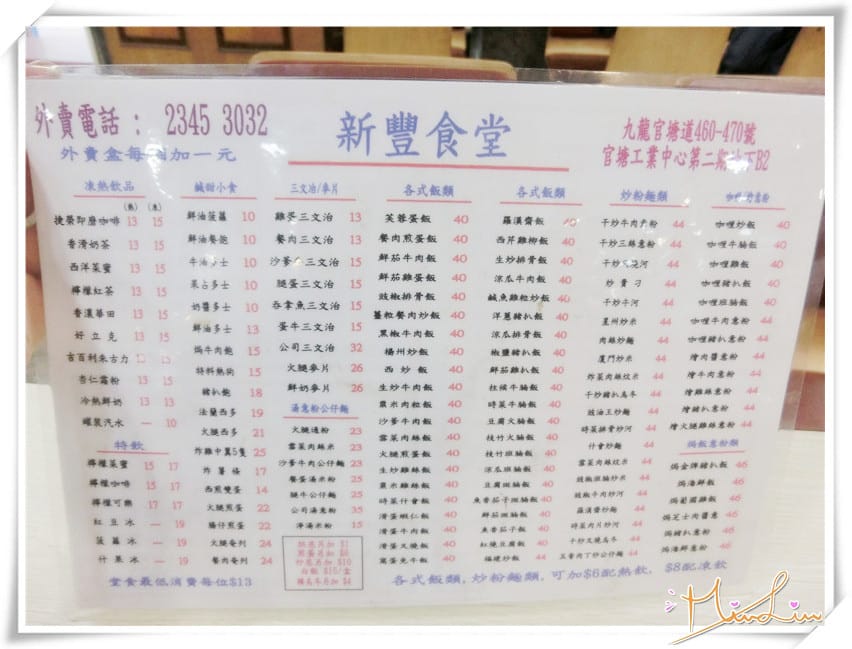 外賣電話： 2345 3032
外賣盒每個加一元
新豐食堂
九龍官塘道460-470號
官塘工業中心第二期地下B2
凍熱飲品
(熱) (凍)
捷榮即磨咖啡 13 15
香滑奶茶 13 15
西洋菜蜜 13 15
檸檬紅茶 13 15
香濃華田 13 15
好立克 13 15
吉百利朱古力 13 15
杏仁霜粉 13 15
冷熱鮮奶 13 15
罐裝汽水 — 10
特飲
檸檬菜蜜 15 17
檸檬咖啡 15 17
檸檬可樂 17 17
紅豆冰 — 19
菠蘿冰 — 19
什果冰 — 19
堂食最低消費每位$13
鹹甜小食
鮮油菠蘿 10
鮮油餐飽 10
牛油多士 10
菜占多士 10
奶醬多士 10
鮮油多士 13
焗牛肉飽 15
特料熱狗 15
豬扒飽 18
法蘭西多 19
火腿西多 21
炸雞中翼5隻 25
炸薯條 17
西煎雙蛋 14
火腿煎蛋 22
腸仔煎蛋 22
火腿奄列 24
餐肉奄列 24
三文治/麥片
雞蛋三文治 13
餐肉三文治 13
沙爹牛三文治 15
腿蛋三文治 15
吞拿魚三文治 15
蛋牛三文治 15
公司三文治 32
火腿麥片 26
鮮奶麥片 26
湯意粉公仔麵
火腿通粉 23
雪菜肉絲米 23
沙爹牛肉公仔麵 23
餐蛋湯米粉 25
腿牛公仔麵 25
公司湯意粉 35
淨湯米粉 15
烘底另加 $1
煎蛋另加 $6
炒底另加 $10
白飯 $15/盒
轉烏冬另加 $4
各式飯類
芙蓉蛋飯 40
餐肉煎蛋飯 40
鮮茄牛肉飯 40
鮮茄雞蛋飯 40
豉椒排骨飯 40
薑粒餐肉炒飯 40
黑椒牛肉飯 40
楊州炒飯 40
西炒飯 40
生炒牛肉飯 40
粟米肉粒飯 40
沙爹牛肉飯 40
雪菜肉絲飯 40
火腿煎蛋飯 40
生炒雞絲飯 40
粟米雞絲飯 40
時菜什會飯 40
滑蛋蝦仁飯 40
滑蛋牛肉飯 40
滑蛋叉燒飯 40
窩蛋免牛飯 40
各式飯類
羅漢齋飯 40
西芹雞柳飯 40
生炒排骨飯 40
涼瓜牛肉飯 40
鹹魚雞粒炒飯 40
洋蔥豬扒飯 40
涼瓜排骨飯 40
椒鹽豬扒飯 40
鮮茄雞扒飯 40
柱候牛腩飯 40
時菜牛腩飯 40
豆腐火腩飯 40
枝竹火腩飯 40
枝竹班腩飯 40
涼瓜班腩飯 40
豆腐班腩飯 40
魚香茄子班腩飯 40
鮮茄班腩飯 40
魚香茄子飯 40
紅燒豆腐飯 40
福建炒飯 44
炒粉麵類
干炒牛肉意粉 44
干炒三絲意粉 44
炒貴刁 44
干炒牛河 44
星州炒米 44
肉絲炒麵 44
廈門炒米 44
炸菜肉絲炆米 44
干炒豬扒烏冬 44
豉油王炒麵 44
時菜排骨炒河 44
什會炒麵 44
雪菜肉絲炆米 44
豉椒班腩炒米 44
豉椒牛肉炒河 44
羅漢齋炒麵 44
時菜肉片炒河 44
干炒叉燒烏冬 44
五香肉丁炒公仔麵 44
咖喱炒飯 40
咖喱牛腩飯 40
咖喱雞飯 40
咖喱豬扒飯 40
咖喱班腩飯 40
咖喱牛肉意粉 40
咖喱豬扒意粉 40
燴肉醬意粉 40
燴牛肉意粉 40
燴雞絲意粉 40
燴豬扒意粉 40
燴火腿雞絲意粉 40
焗飯意粉類
焗金牌豬扒飯 46
焗海鮮飯 46
焗葡國雞飯 46
焗芝士肉醬意 46
焗豬扒意粉 46
焗海鮮意粉 46
各式飯類,炒粉麵類,可加$6配熱飲, $8配凍飲
MinLiu